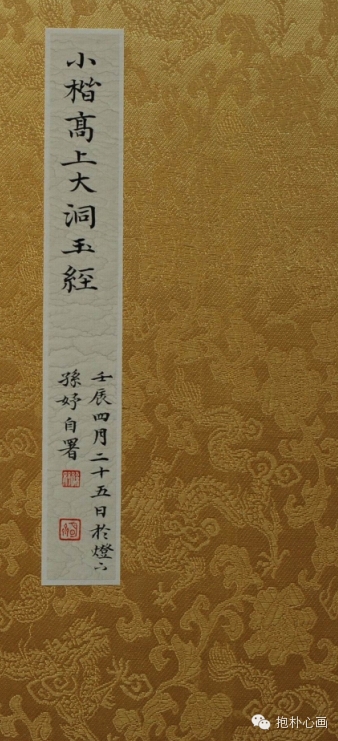 小楷高上大洞玉經
壬辰四月二十五日於燈下
孫妤自署
抱朴心画